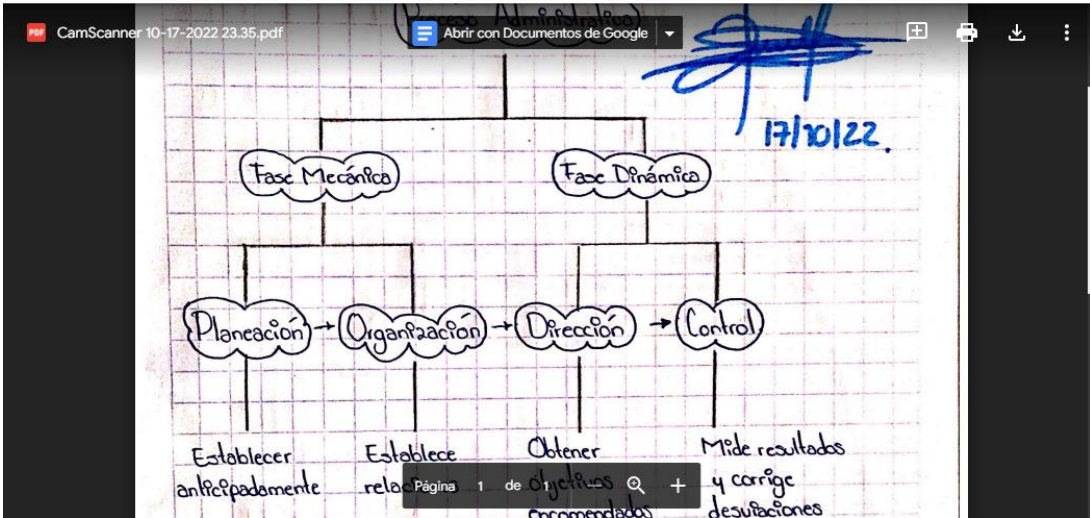 CamScanner 10-17-2022 23.35.pdf
Proceso Administrativo
Abrir con Documentos de Google
17/10/22.
Fase Mecánica
Fase Dinámica
Planeación → Organización → Dirección → Control
Establecer
anticipadamente
Establece
Obtener
objetivos
encomendados
Mide resultados
y corrige
desviaciones
Página 1 de 1